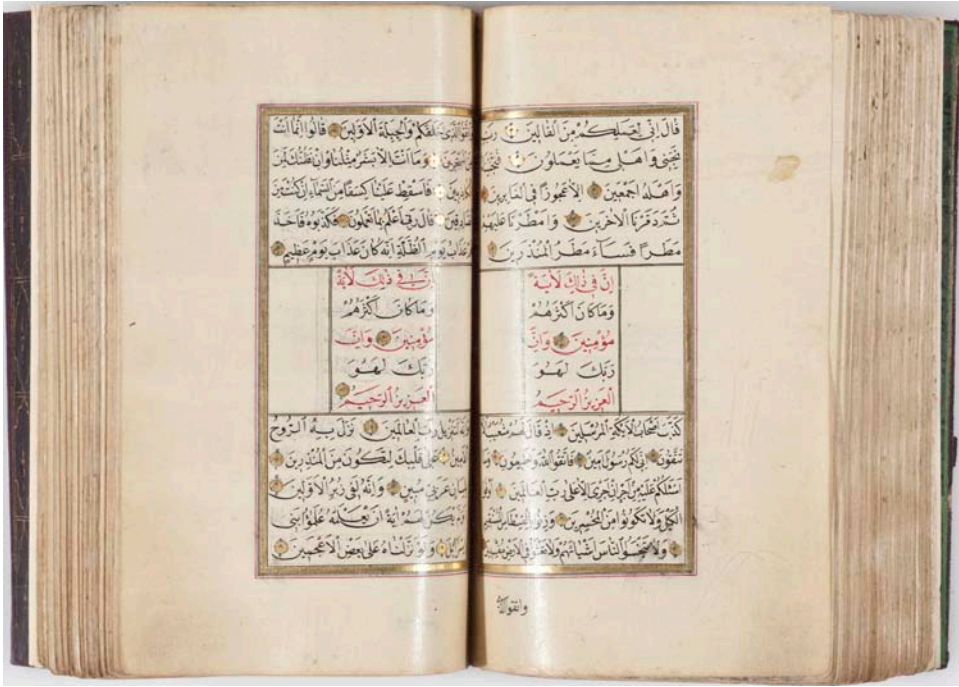 قَالَ اِنّٖى لِعَمَلِكُمْ مِنَ الْقَالٖينَ رَبِّ
نَجِّنٖى وَاَهْلٖى مِمَّا يَعْمَلُونَ
وَاَهْلَهُ اَجْمَعٖينَ اِلَّا عَجُوزًا فِى الْغَابِرٖينَ
ثُمَّ دَمَّرْنَا الْاٰخَرٖينَ وَاَمْطَرْنَا عَلَيْهِمْ
مَطَرًا فَسَاءَ مَطَرُ الْمُنْذَرٖينَ
اِنَّ فٖى ذٰلِكَ لَاٰيَةً
وَمَا كَانَ اَكْثَرُهُمْ
مُؤْمِنٖينَ وَاِنَّ
رَبَّكَ لَهُوَ
الْعَزٖيزُ الرَّحٖيمُ
كَذَّبَ اَصْحَابُ الْاَيْكَةِ الْمُرْسَلٖينَ اِذْ قَالَ لَهُمْ شُعَيْبٌ
تَتَّقُونَ اِنّٖى لَكُمْ رَسُولٌ اَمٖينٌ فَاتَّقُوا اللّٰهَ وَاَطٖيعُونِ وَمَا
اَسْئَلُكُمْ عَلَيْهِ مِنْ اَجْرٍ اِنْ اَجْرِىَ اِلَّا عَلٰى رَبِّ الْعَالَمٖينَ
الْكَيْلَ وَلَا تَكُونُوا مِنَ الْمُخْسِرٖينَ وَزِنُوا بِالْقِسْطَاسِ
وَلَا تَبْخَسُوا النَّاسَ اَشْيَاءَهُمْ وَلَا تَعْثَوْا فِى الْاَرْضِ مُفْسِدٖينَ
واتقوا
وَاتَّقُوا الَّذٖى خَلَقَكُمْ وَالْجِبِلَّةَ الْاَوَّلٖينَ قَالُوا اِنَّمَا اَنْتَ
مِنَ الْمُسَحَّرٖينَ وَمَا اَنْتَ اِلَّا بَشَرٌ مِثْلُنَا وَاِنْ نَظُنُّكَ لَمِنَ
الْكَاذِبٖينَ فَاَسْقِطْ عَلَيْنَا كِسَفًا مِنَ السَّمَاءِ اِنْ كُنْتَ مِنَ
الصَّادِقٖينَ قَالَ رَبّٖى اَعْلَمُ بِمَا تَعْمَلُونَ فَكَذَّبُوهُ فَاَخَذَهُمْ
عَذَابُ يَوْمِ الظُّلَّةِ اِنَّهُ كَانَ عَذَابَ يَوْمٍ عَظٖيمٍ
اِنَّ فٖى ذٰلِكَ لَاٰيَةً
وَمَا كَانَ اَكْثَرُهُمْ
مُؤْمِنٖينَ وَاِنَّ
رَبَّكَ لَهُوَ
الْعَزٖيزُ الرَّحٖيمُ
وَاِنَّهُ لَتَنْزٖيلُ رَبِّ الْعَالَمٖينَ نَزَلَ بِهِ الرُّوحُ
الْاَمٖينُ عَلٰى قَلْبِكَ لِتَكُونَ مِنَ الْمُنْذِرٖينَ
بِلِسَانٍ عَرَبِىٍّ مُبٖينٍ وَاِنَّهُ لَفٖى زُبُرِ الْاَوَّلٖينَ
اَوَلَمْ يَكُنْ لَهُمْ اٰيَةً اَنْ يَعْلَمَهُ عُلَمٰؤُا بَنٖى
اِسْرَائٖيلَ وَلَوْ نَزَّلْنَاهُ عَلٰى بَعْضِ الْاَعْجَمٖينَ